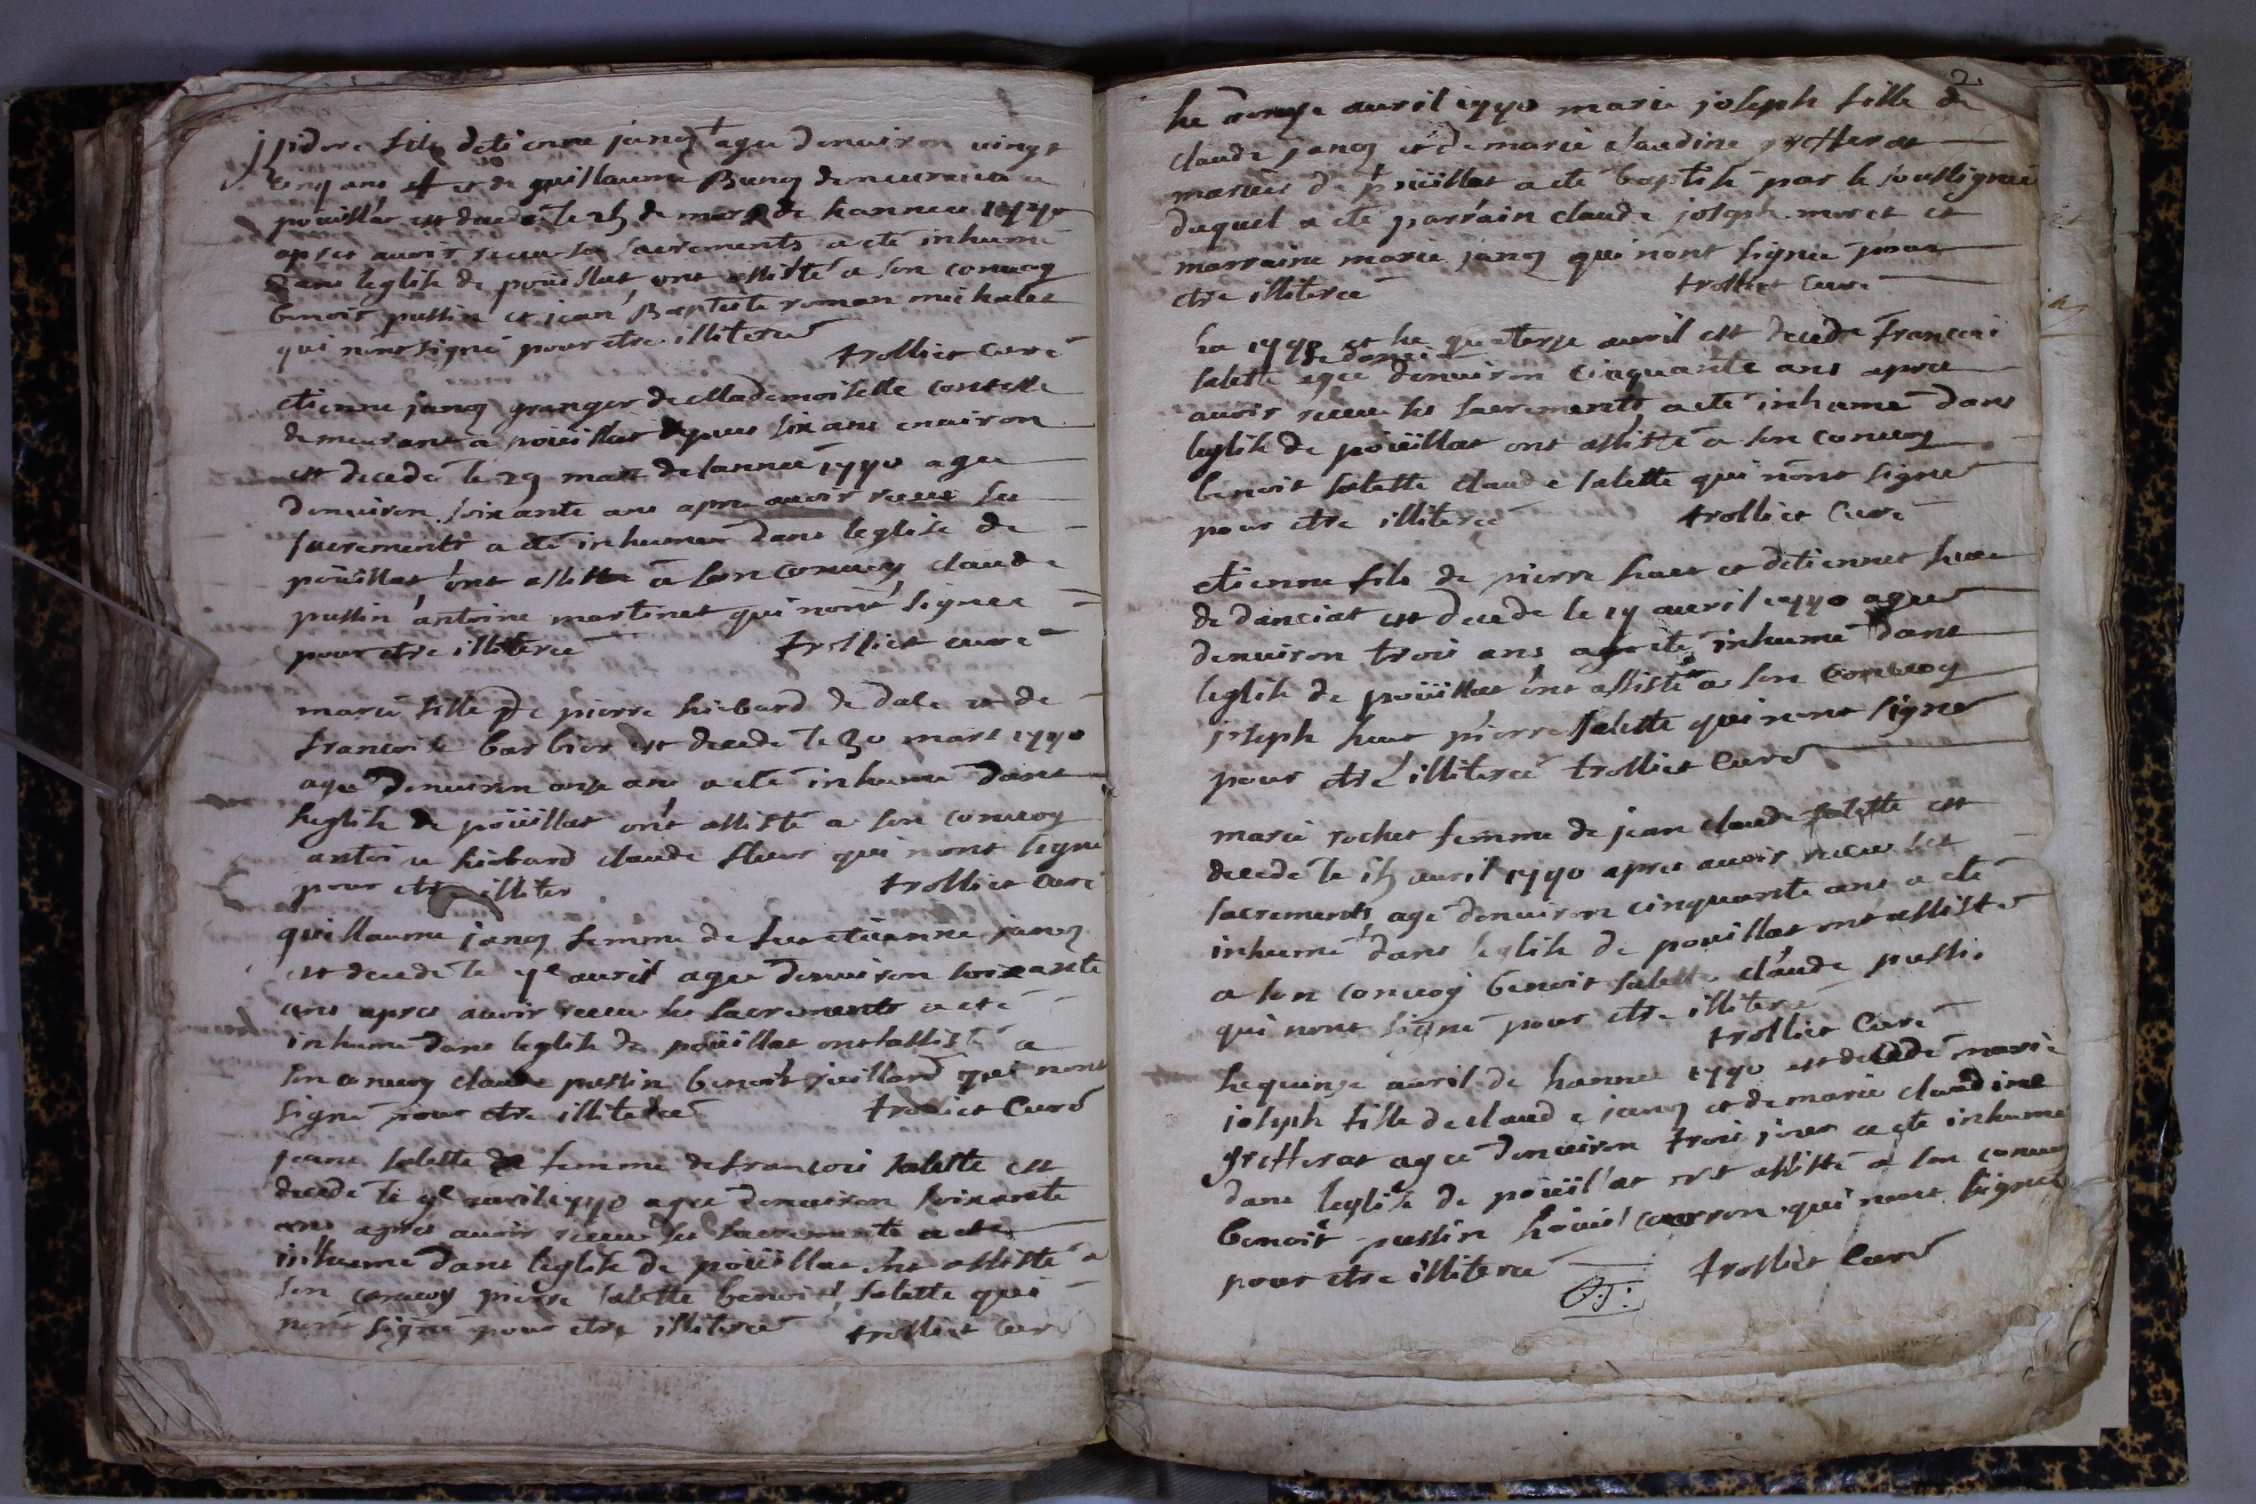 fils detienne janez agee denuiron uingt
cinq ans et de guillauma demeurant a
pouillat est decedé le 25 de mars de hannee 1740
apres auoir receu les sacrements a eté inhumé
dans leglise de poüillat ont assisté a son conuoy
benoit pussin et jean Baptiste roman michalet
qui nont signé pour etre illiteree
trolliet Curé
etienne janez granger de Mademoiselle
demeurant a poüillat depuis six ans enuiron
est decedé le 29 mars de lannee 1740 agee
denuiron soixante ans apres auoir receu les
sacrements a eté inhumer dans leglise de
poüillat ont assisté a son conuoy claude
pussin antoine martinet qui nont signee
pour etre illiteree trolliet curé
marie fille de pierre hiebard de dale et de
francoise barbier est decede le 30 mars 1740
agee denuiron onze ans a eté inhumé dans
leglise de poüillat ont assisté a son conuoy
hiebard claude qui nont signé
pour etre illiter trolliet Curé
guillauma janez femme de feu etienne janez
est decedé le auril agee denuiron soixante
ans apres auoir receu les sacrements a eté
inhumé dans leglise de poüillat ont assisté a
son conuoy claude pussin benoit juillard qui nont
signé pour etre illiteree trolliet Curé
jeane salette de femme de francois salette est
decedé le auril 1740 agee denuiron soixante
ans apres auoir receu les sacrements a eté
inhumé dans leglise de poüillat ont assisté a
son conuoy pierre salette benoist salette qui
nont signé pour etre illiteree trolliet curé
2.
he auril 1740 marie joseph fille de
claude janez et de marie claudine grefferat
mariés de poüillat a eté baptisé par le soussignee
duquel a eté parrain claude joseph moret et
marraine marie janez qui nont signee pour
etre illiteree trolliet Curé
la 1740 et he quaterze auril est decedé francoi
de danciat
salette agee denuiron cinquante ans apres
auoir receu les sacrements a eté inhumé dans
leglise de poüillat ont assisté a son conuoy
benoit salette claude salette qui nont signé
pour etre illiteree trolliet Curé
etienne fils de pierre huet et detiennet
de danciat est decede le auril 1740 agee
denuiron trois ans a eté inhumé dans
leglise de poüillat ont assisté a son conuoy
joseph huet pierre salette qui nont signé
pour etre illiteree trolliet Curé
marie rochet femme de jean claude salette est
decedé le 15 auril 1740 apres auoir receu les
sacrements agé denuiron cinquante ans a eté
inhumé dans leglise de pouillat ont assisté
a son conuoy benoit salette claude pussi.
qui nont signé pour etre illiteree
trolliet Curé
he quinze auril de hannee 1740 est decedé marie
joseph fille de claude janez et de marie claudine
grefferat agee denuiron trois jour a eté inhumé
dans leglise de poüillat ont assisté a son conuoy
benoit pussin qui nont signé
pour etre illiteree trolliet Curé